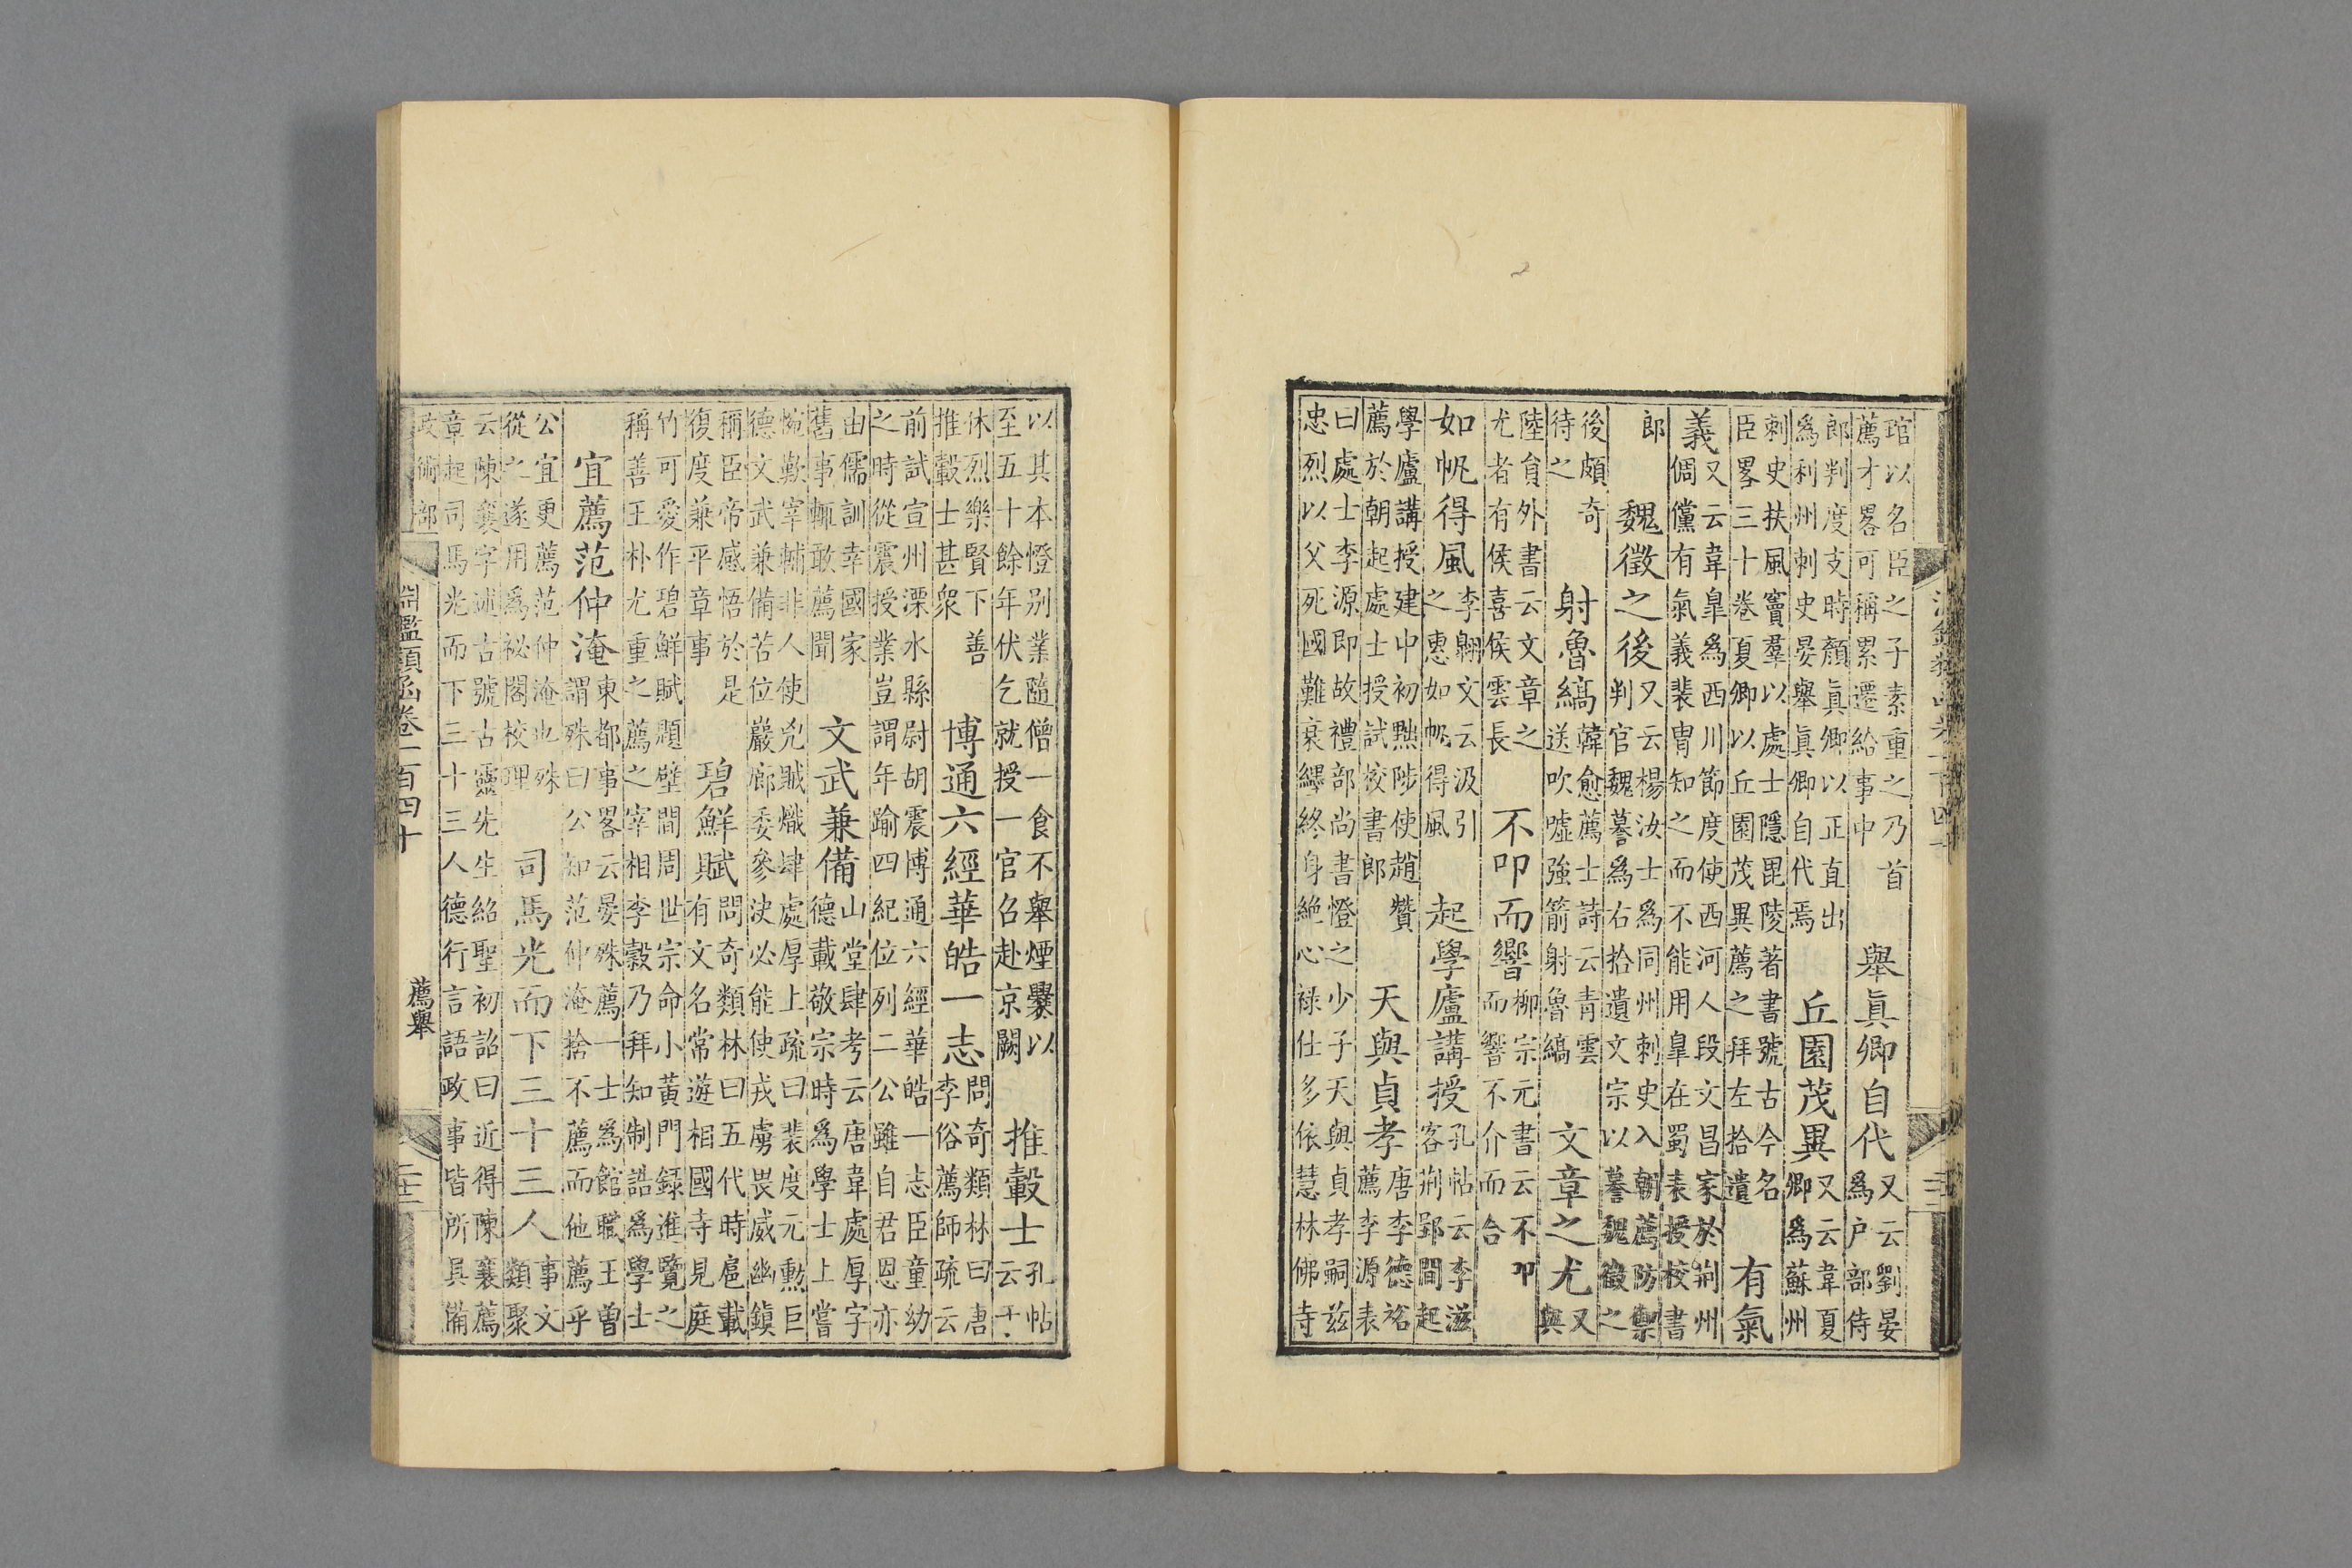 琯以名臣之子素重之乃首
薦才畧可稱累遷給事中
舉眞卿自代
又云劉晏
爲户部侍
郎判度支時顏眞卿以正直出
爲利州刺史晏舉眞卿自代焉
丘園茂異
又云韋夏
卿爲蘇州
刺史扶風竇羣以處士隱毘陵著書號古今名
臣畧三十卷夏卿以丘園茂異薦之拜左拾遺
有氣
義
又云韋臯爲西川節度使西河人段文昌家於荆州
倜儻有氣義裴冑知之而不能用臯在蜀表授校書
郎
魏徵之後
又云楊汝士爲同州刺史入朝薦防禦
判官魏謩爲右拾遺文宗以謩魏徵之
後頗奇
待之
射魯縞
韓愈薦士詩云青雲
送吹噓強箭射魯縞
文章之尤
又
與
陸貟外書云文章之
尤者有侯喜侯雲長
不叩而響
柳宗元書云不叩
而響不介而合
如帆得風
李翺文云汲引
之惠如帆得風
起學廬講授
孔帖云李滋
客荆郢間起
學廬講授建中初黜陟使趙贊
薦於朝起處士授試校書郎
天與貞孝
唐李德裕
薦李源表
曰處士李源即故禮部尚書憕之少子天與貞孝嗣茲
忠烈以父死國難衰纆終身絶心祿仕多依慧林佛寺
以其本憕别業隨僧一食不舉煙爨以
至五十餘年伏乞就授一官召赴京闕
推轂士
孔帖
云于
休烈樂賢下善
推轂士甚衆
博通六經華皓一志
問奇類林曰唐
李俗薦師疏云
前試宣州溧水縣尉胡震博通六經華皓一志臣童幼
之時從震授業豈謂年踰四紀位列二公雖自君恩亦
由儒訓幸國家
舊事輒敢薦聞
文武兼備
山堂肆考云唐韋處厚字
德載敬宗時爲學士上嘗
惋歎宰輔非人使兇賊熾肆處厚上疏曰裴度元勲巨
德文武兼備苦位巖廊委參決必能使戎虜畏威幽鎮
稱臣帝感悟於是
復度兼平章事
碧鮮賦
問奇類林曰五代時扈載
有文名常遊相國寺見庭
竹可愛作碧鮮賦題壁間周世宗命小黃門録進覽之
稱善王朴尤重之薦之宰相李穀乃拜知制誥爲學士
宜薦范仲淹
東都事畧云晏殊薦一士爲館職王曽
謂殊曰公知范仲淹捨不薦而他薦乎
公宜更薦范仲淹也殊
從之遂用爲祕閣校理
司馬光而下三十三人
事文
類聚
云陳襄字述古號古靈先生紹聖初詔曰近得陳襄薦
章起司馬光而下三十三人德行言語政事皆所具備
政術部
淵鑑類函卷一百四十
薦舉